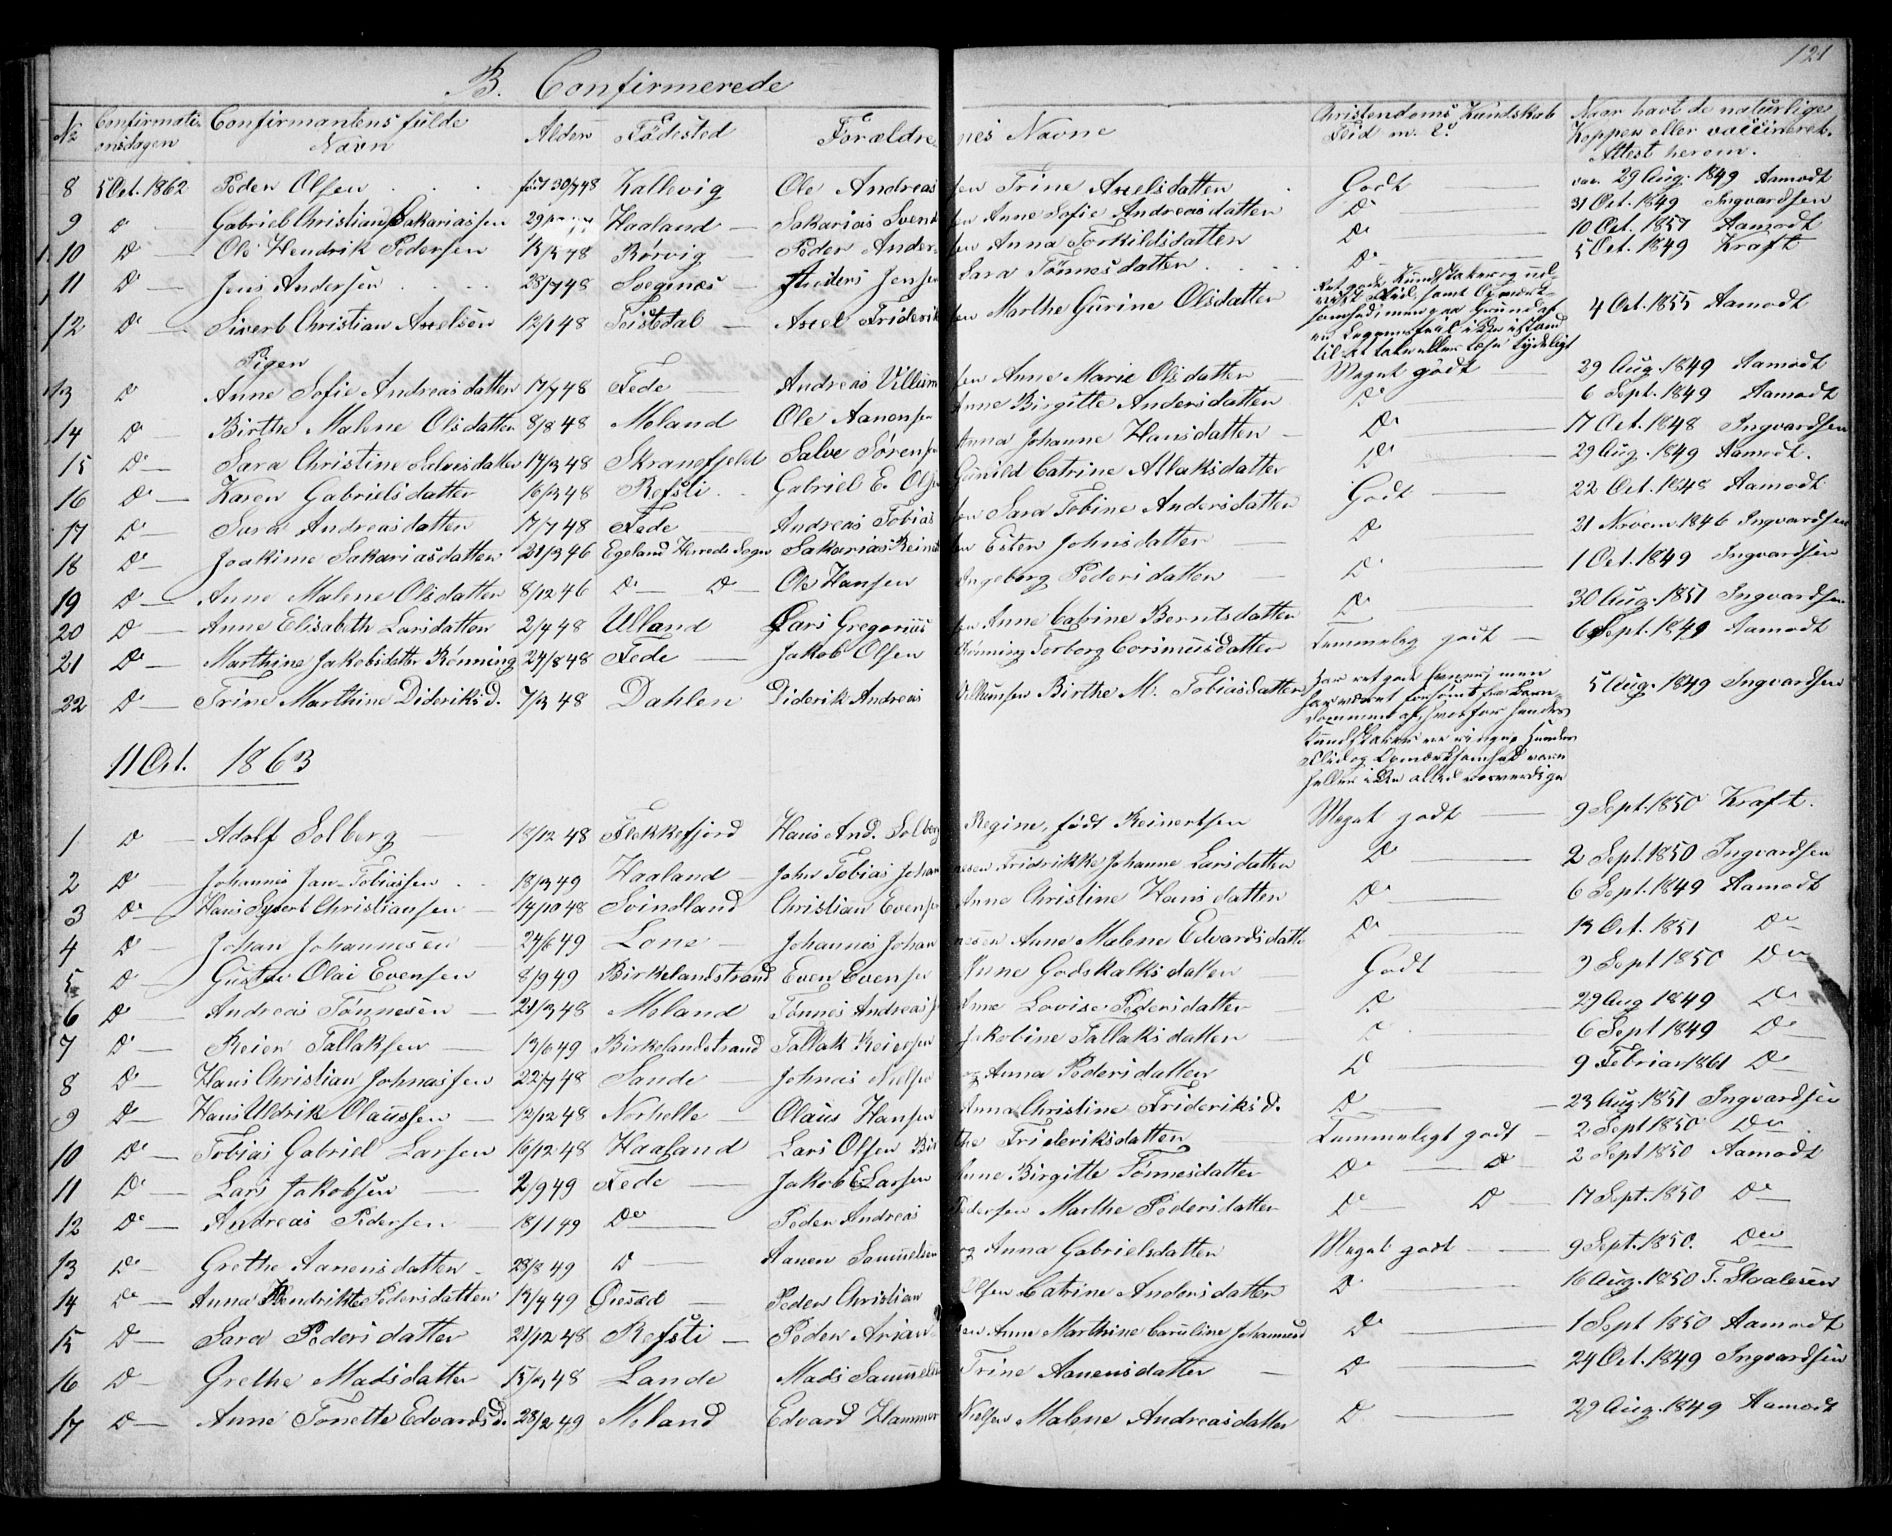 121
B. Confirmerede
No Confirmationsdagen Confirmantens fulde Navn Alder Fødested Forældrenes Navne Christendoms Kundskab Flid m. v. Naar havt de naturlige Kopper eller vaccineret. Attest herom.
8 5 Oct. 1862 Peder Olsen født 30/3 48 Kallevig Ole Andreassen Trine Axelsdatter Godt 29 Aug. 1849 Aamodt
9 Do Gabriel Christian Sakariassen Haaland Sakarias Svendsen Anne Sofie Andreasdatter Do 31 Oct. 1849 Ingvardsen
10 Do Ole Hendrik Pedersen 13/3 48 Rørvig Peder Andersen Anna Torkildsdatter Do 10 Oct. 1857 Aamodt
11 Do Jens Andersen 28/7 48 Sveginæs Anders Jensen Sara Tønnesdatter Do 5 Oct. 1849 Kraft
12 Do Sivert Christian Axelsen 12/1 48 Feistdal Axel Frideriksen Marthe Gurine Olsdatter 4 Oct. 1855 Aamodt
Ret gode Kundskaber og
Flid, samt Opmærk-
somhed; men paa Grund af
en
til at tale eller læse tydeligt
Pigen
13 Do Anne Sofie Andreasdatter 17/7 48 Fede Andreas Villumsen Anne Marie Olsdatter Meget godt 29 Aug. 1849 Aamodt
14 Do Birthe Malene Olsdatter 8/8 48 Moland Ole Aanensen Anne Birgitte Andersdatter Do 6 Sept. 1849 Aamodt
15 Do Sara Christine Salvesdatter 17/3 48 Skranefjeld Salve Sørensen Anna Johanne Hansdatter Do 17 Oct. 1848 Ingvardsen
16 Do Karen Gabrielsdatter 16/3 48 Refsti Gabriel E. Olsen Gunild Catrine Atlaksdatter Do 29 Aug. 1849 Aamodt.
17 Do Sara Andreasdatter 7/7 48 Fede Andreas Tobiassen Sara Tobine Andersdatter Godt 22 Oct. 1848 Aamodt
18 Do Joakime Sakariasdatter 21/3 46 Egeland Herreds Sogn Sakarias Reinertsen Ester Johnsdatter Do 21 Novem 1846 Ingvardsen
19 Do Anne Malene Olsdatter 8/12 46 Do Do Ole Hansen Ingeborg Pedersdatter Do 1 Oct. 1849 Ingvardsen
20 Do Anne Elisabeth Larsdatter 2/4 48 Ulland Lars Gregoriussen Anne Catrine Berntsdatter Do 30 Aug. 1851 Ingvardsen
21 Do Marthine Jakobsdatter Rønning 24/8 48 Fede Jakob Olsen Rønning Torborg Corsmusdatter Temmelig godt 6 Sept. 1849 Aamodt
22 Do Trine Marthine Dideriksd. 7/3 48 Dahlen Diderik Andreas Villumsen Birthe M. Tobiasdatter 5 Aug. 1849 Ingvardsen
Har ret gode Evner; men
har været forsømt fra Barn-
dommen af; hvorfor hendes
Kundskaber er ringe; hendes
Flid og Opmærksomhed vare
heller ikke altid
11 Oct. 1863
1 Do Adolf Solberg 18/12 48 Flekkefjord Hans And. Solberg Regine, født Reinertsen Meget godt 9 Sept. 1850 Kraft.
2 Do Johannes Jan-Tobiassen 18/3 49 Haaland John Tobias Johannesen Fridrikke Johanne Larsdatter Do 2 Sept. 1850 Ingvardsen
3 Do Hans Syvert Christiansen 14/10 48 Svindland Christian Evensen Anne Christine Hansdatter Do 6 Sept. 1849 Aamodt
4 Do Johan Johannesen 24/6 49 Lone Johannes Johannesen Anne Malene Edvardsdatter Do 13 Oct. 1851 Do
5 Do Gustav Olai Evensen 8/9 49 Birkelandstrand Even Evensen Anne Godskalksdatter Godt 9 Sept 1850 Do
6 Do Andreas Tønnesen 21/3 48 Moland Tønnes Andreassen Anne Lovise Pedersdatter Do 29 Aug 1849 Do
7 Do Reier Tallaksen 13/6 49 Birkelandstrand Tallak Reiersen Jakobine Tallaksdatter Do 6 Sept 1849 Do
8 Do Hans Christian Johnassen 22/7 48 Sande Johnas Nielsen og Anna Pedersdatter Do 9 Februar 1861 Do
9 Do Hans Uldrik Olaussen 12/12 48 Nerhelle Olaus Hansen Anna Christine Frideriksd. Do 23 Aug. 1851 Ingvardsen
10 Do Tobias Gabriel Larsen 16/12 48 Haaland Lars Olsen Birthe Frideriksdatter Temmeligt godt 2 Sept 1850 Do
11 Do Lars Jakobsen 2/9 49 Fede Jakob E. Larsen Anne Birgitte Tønnesdatter Do Do 2 Sept 1850 Aamodt
12 Do Andreas Pedersen 18/1 49 Do Peder Andreas Pedersen Marthe Pedersdatter Do Do 17 Sept. 1850 Do
13 Do Grethe Aanensdatter 28/8 49 Do Aanen Samuelsen og Anna Gabrielsdatter Meget godt 9 Sept. 1850. Do
14 Do Anna Hendrikte Pedersdatter 13/4 49 Øiesæd Peder Christian Olsen Catrine Andersdatter Do 16 Aug. 1850 T. Staalesen
15 Do Sara Pedersdatter 21/12 48 Refsti Peder Ariansen Anne Marthine Caroline Johannesd Do 1 Sept 1850 Aamodt
16 Do Grethe Madsdatter 15/ 48 Lande Mads Samuelsen Trine Aanensdatter Do 24 Oct. 1849 Ingvardsen
17 Do Anne Tonette Edvardsd. 28/2 49 Moland Edvard Hammer Nielsen Malene Andreasdatter Do 29 Aug. 1849 Aamodt